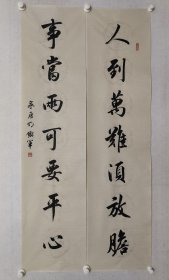 人到萬難須放膽
事當兩可要平心